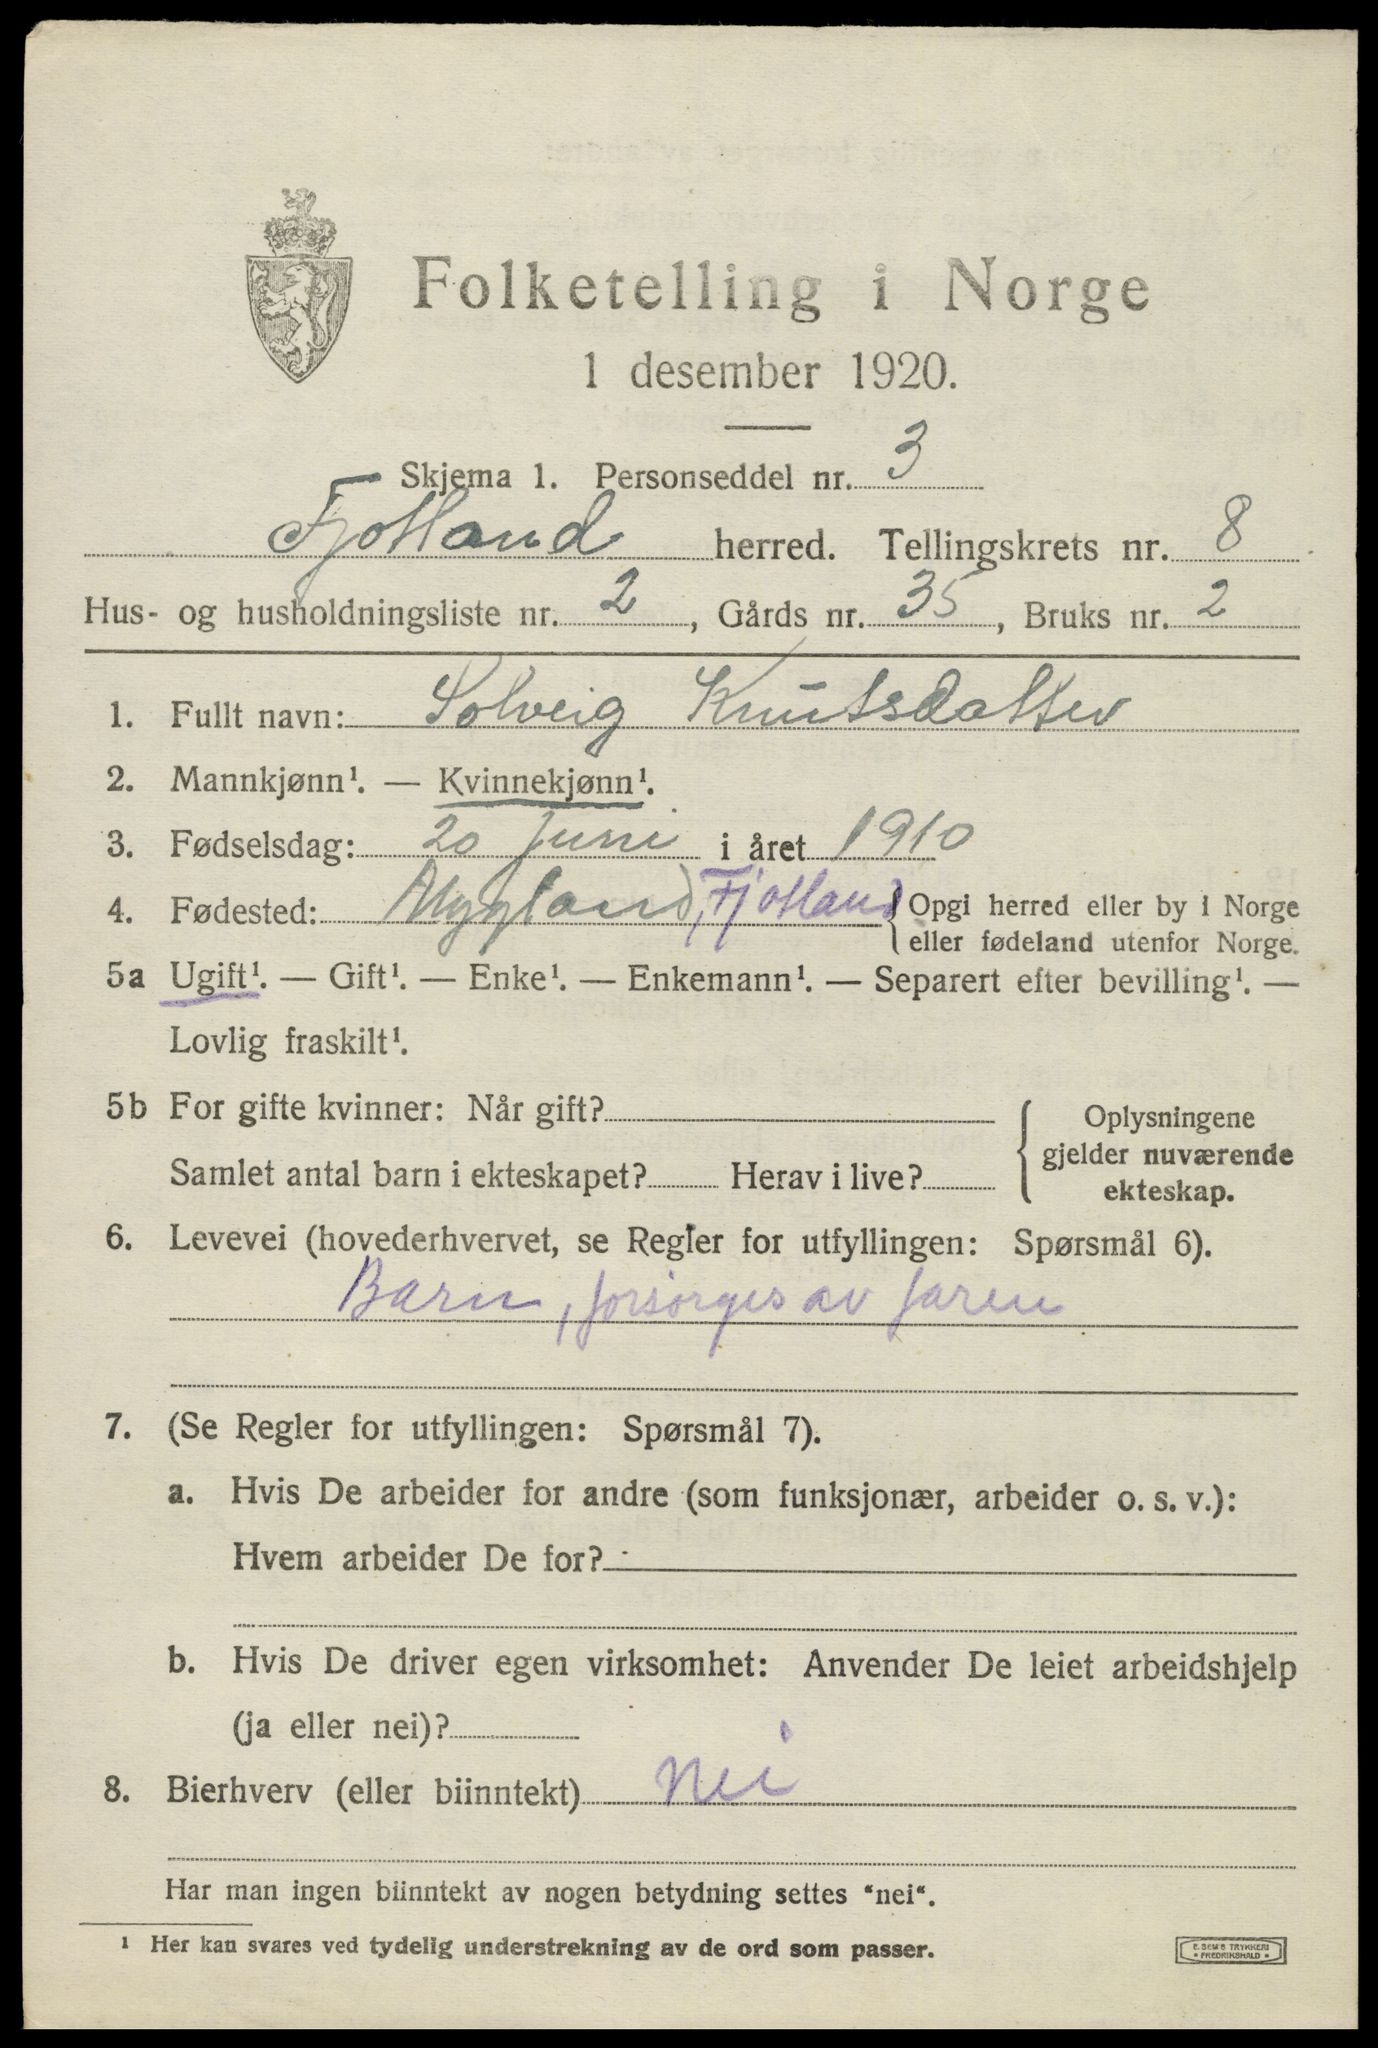 Folketelling i Norge
1 desember 1920.
Skjema 1. Personseddel nr. 3
Fjotland herred. Tellingskrets nr. 8
Hus- og husholdningsliste nr. 2, Gårds nr. 35, Bruks nr. 2
1. Fullt navn: Solveig Knutsdatter
2. Mannkjønn¹. — Kvinnekjønn¹.
3. Fødselsdag: 20 Juni i året 1910
4. Fødested: Mygland, Fjotland { Opgi herred eller by i Norge
eller fødeland utenfor Norge.
5a Ugift¹. — Gift¹. — Enke¹. — Enkemann¹. — Separert efter bevilling¹. —
Lovlig fraskilt¹.
5b For gifte kvinner: Når gift?
Samlet antal barn i ekteskapet? Herav i live?
{ Oplysningene
gjelder nuværende
ekteskap.
6. Levevei (hovederhvervet, se Regler for utfyllingen: Spørsmål 6).
Barn, forsørges av faren
7. (Se Regler for utfyllingen: Spørsmål 7).
a. Hvis De arbeider for andre (som funksjonær, arbeider o. s. v.):
Hvem arbeider De for?
b. Hvis De driver egen virksomhet: Anvender De leiet arbeidshjelp
(ja eller nei)?
8. Bierhverv (eller biinntekt) Nei
Har man ingen biinntekt av nogen betydning settes "nei".
¹ Her kan svares ved tydelig understrekning av de ord som passer.
E. SEM'S TRYKKERI
* FREDRIKSHALD *